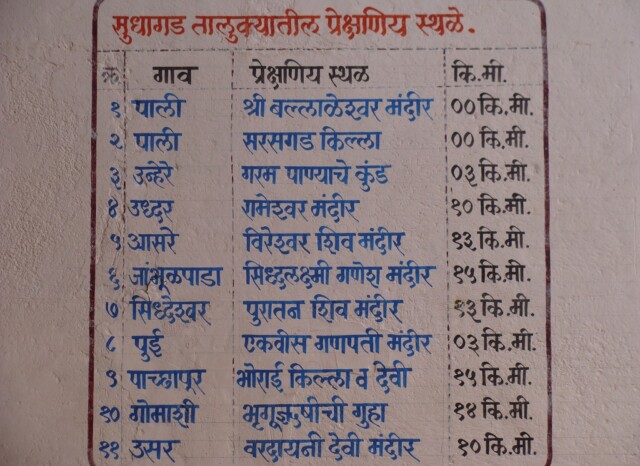 सुधागड तालुक्यातील प्रेक्षणिय स्थळे.
क्र गाव प्रेक्षणिय स्थळ कि.मी.
१ पाली श्री बल्लाळेश्वर मंदीर ०० कि.मी.
२ पाली सरसगड किल्ला ०० कि.मी.
३ उन्हेरे गरम पाण्याचे कुंड ०३ कि.मी.
४ उध्दर रामेश्वर मंदीर १० कि.मी.
५ आसरे विरेश्वर शिव मंदीर १३ कि.मी.
६ जांभूळपाडा सिध्दलक्ष्मी गणेश मंदीर १५ कि.मी.
७ सिध्देश्वर पुरातन शिव मंदीर १३ कि.मी.
८ पुई एकवीस गणपती मंदीर ०३ कि.मी.
९ पाच्छापूर भोराई किल्ला व देवी १५ कि.मी.
१० गोमाशी भृगूऋषीची गुहा १४ कि.मी.
११ उसर वरदायनी देवी मंदीर १० कि.मी.